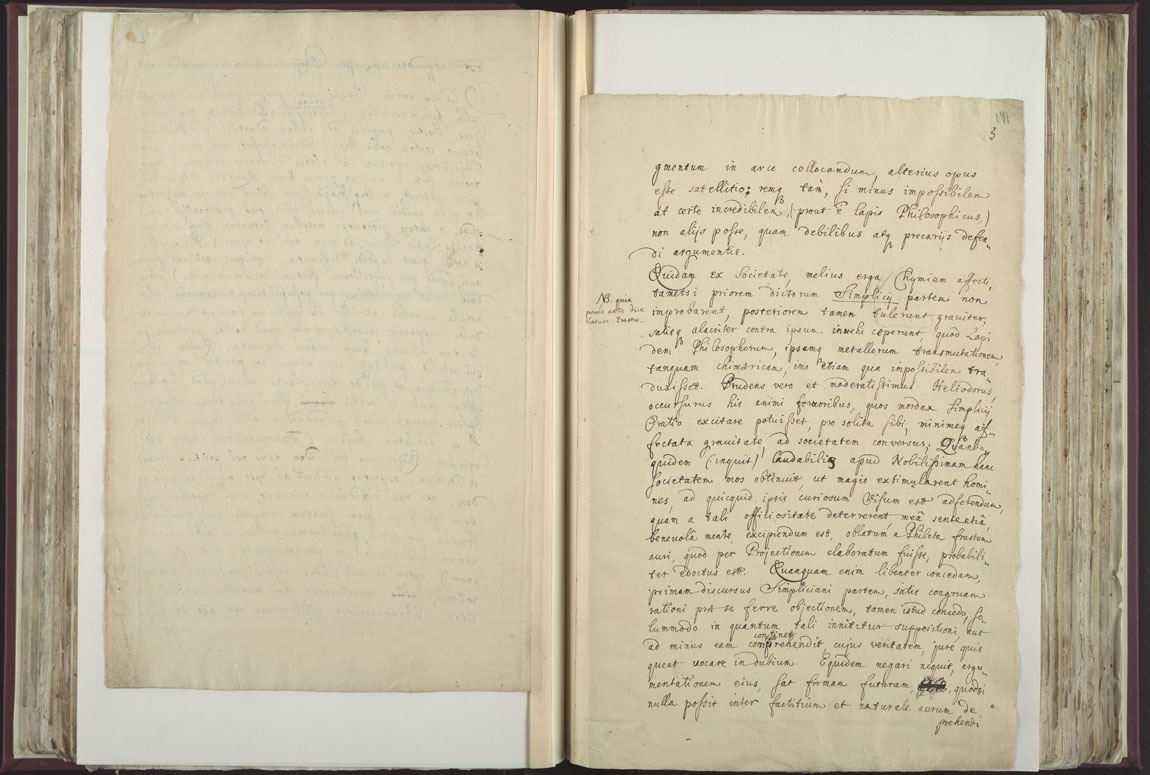 191
3
gmentum in arce collocandum, alterius opus
esse satellitio; remq tām, si minus impossibilem
at certe incredibilem, (prout ē lapis Philosophicus,)
non alijs posse, quam debilibus atq precarijs defen-
di argumentis.
Quidam ex Societate, melius erga Chymiam affecti,
tametsi priorem dictorum Simplicij partem non
NB. quia
paulo ante
Erastus.
improbarent, posteriorem tamen tulerunt graviter,
satisq alacriter contra ipsum invehi ceperunt, quod Lapi
dem Philosophorum, ipsamq metallorum transmutationem
tanquam chimæricam, imo etiam qua impossibilem tra-
duxisset. Prudens vero et moderatissimus Heliodorus,
occursurus his animi fervoribus, quos mordax Simplicij
Oratio excitare potuisset, pro solita sibi, minimeq af-
fectata gravitate, ad societatem conversus; Quando-
quidem (inquit) laudabilis apud Nobilissimam hanc
societatem mos obtinuit, ut magis extimularent homi-
nes, ad quicquid ipsis curiosum visum est adferendum,
quam a tali officiositate deterrerent, meâ sententiâ,
benevolâ mente, excipiendum est, oblatum a Phileta frustum
auri, quod per Projectionem elaboratum fuisse, probabili-
ter edoctus est. Quanquam enim libenter concedam,
primam discursus Simpliciani partem, satis congruam
rationi præ se ferre objectionem, tamen istud concedo, so-
lummodo in quantum tali innititur suppositioni, aut
continet
ad minus eam comprehendit, cujus veritatem, jure quis
queat vocare in dubium. Equidem negari nequit, argu-
mentationem eius, sat firmam futuram, quodsi
nulla possit inter factitium et naturale aurum de
prehendi